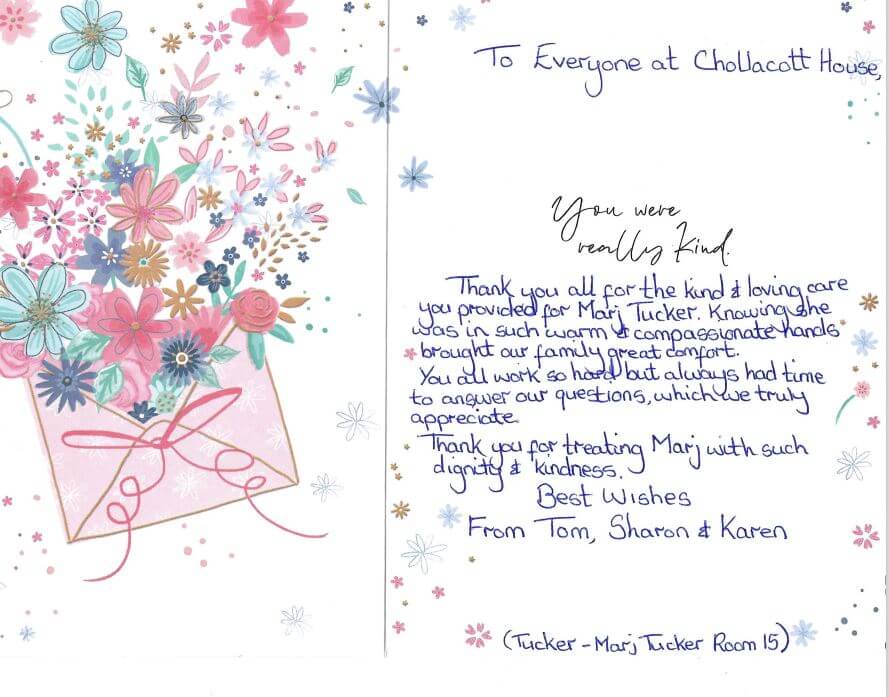 To Everyone at Chollacott House,
You were
really kind.
Thank you all for the kind & loving care
you provided for Marj Tucker. Knowing she
was in such warm & compassionate hands
brought our family great comfort.
You all work so hard but always had time
to answer our questions, which we truly
appreciate
Thank you for treating Marj with such
dignity & kindness.
Best Wishes
From Tom, Sharon & Karen
(Tucker - Marj Tucker Room 15)